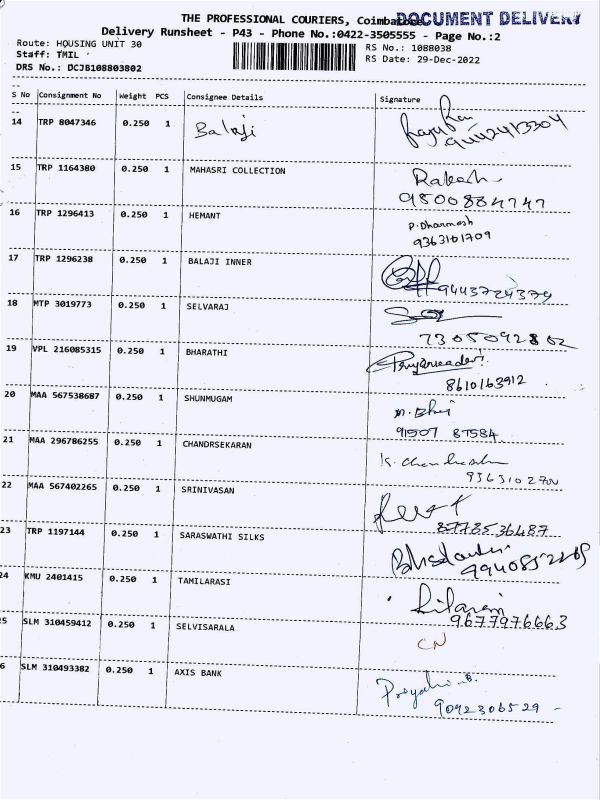 THE PROFESSIONAL COURIERS, Coimbatore
DOCUMENT DELIVERY
Delivery Runsheet - P43 - Phone No.:0422-3505555 - Page No.:2
Route: HOUSING UNIT 30
RS No.: 1088038
Staff: TMIL
RS Date: 29-Dec-2022
DRS No.: DCJB108803802
S No Consignment No Weight PCS Consignee Details Signature
14 TRP 8047346 0.250 1 Balaji
9442413304
15 TRP 1164380 0.250 1 MAHASRI COLLECTION Rakesh
9500884747
16 TRP 1296413 0.250 1 HEMANT P. Dharmesh
9363101709
17 TRP 1296238 0.250 1 BALAJI INNER
9443724379
18 MTP 3019773 0.250 1 SELVARAJ
7305092802
19 VPL 216085315 0.250 1 BHARATHI
8610163912
20 MAA 567538687 0.250 1 SHUNMUGAM
91507 87584
21 MAA 296786255 0.250 1 CHANDRSEKARAN K. Chandrasekar
22 MAA 567402265 0.250 1 SRINIVASAN
8778536487
23 TRP 1197144 0.250 1 SARASWATHI SILKS
24 KMU 2401415 0.250 1 TAMILARASI
9677976663
5 SLM 310459412 0.250 1 SELVISARALA CN
6 SLM 310493382 0.250 1 AXIS BANK
9092306529